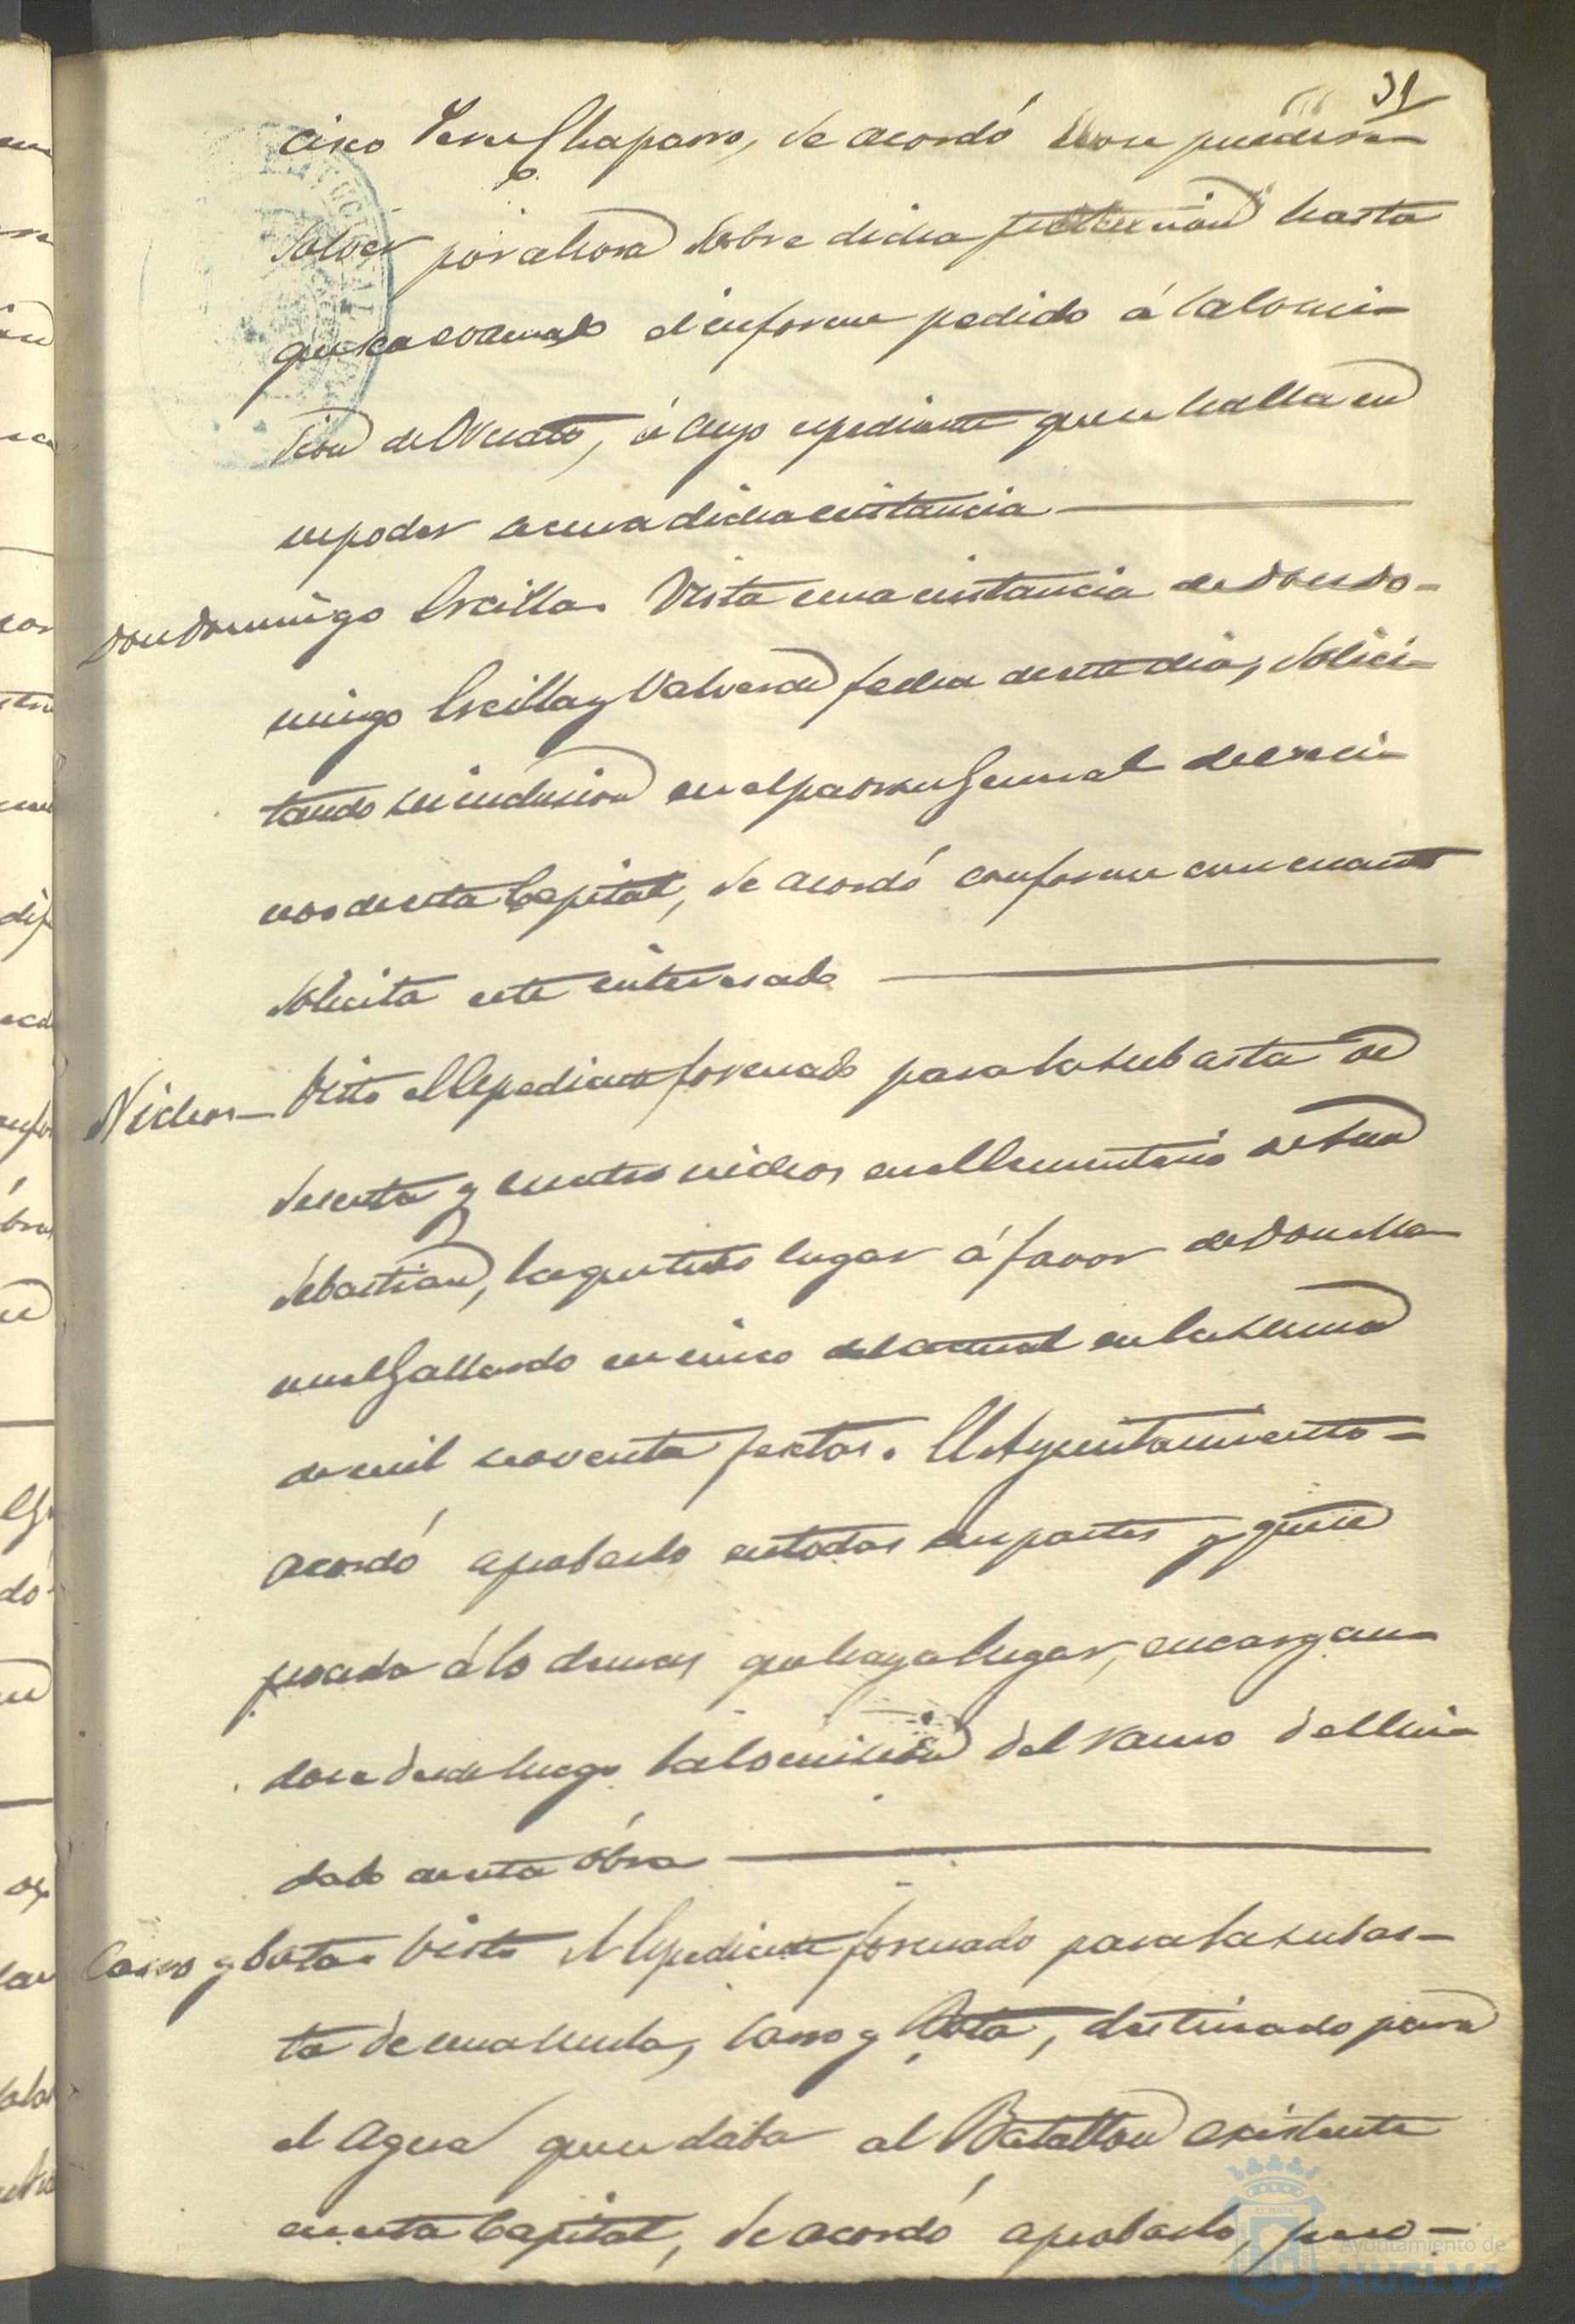 31
cisco Perez Chaparro, se acordó no se puede re-
solver por ahora sobre dicha petición hasta
que sea evacuado el informe pedido á la Comi-
sion de Ornato, á cuyo espediente que se halla en
su poder se una dicha instancia
Don Domingo Ercilla. Vista una instancia de Don Do-
mingo Ercilla y Valverde fecha de este dia, solici-
tando su inclusion en el padron general de veci-
nos de esta Capital, se acordó conforme con cuanto
solicita este interesado
Nichos - Visto el Espediente formado para la subasta de
sesenta y cuatro nichos en el Cementerio de San
Sebastian, la que tubo lugar á favor de Don Ma-
nuel Gallardo en cinco del actual en la suma
de mil noventa pesetas. El Ayuntamiento -
acordó aprobarlo en todas sus partes y que se
proceda á lo demas que haya lugar, encargan-
dose desde luego la Comision del ramo del cui-
dado de esta obra
Carro y bota. Visto el Espediente formado para la subas-
ta de una mula, carro y bota, destinado para
el agua que se daba al Batallon existente
en esta Capital, se acordó aprobarlo, pero -
Ayuntamiento de
HUELVA